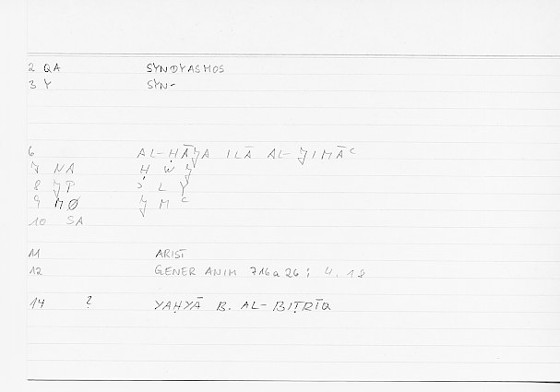 2 QA SYNDYASMOS
3 Y SYN-
6 AL-ḤĀǦA ILĀ AL-ǦIMĀᶜ
7 NA Ḥ W Ǧ
8 L Y
9 MØ Ǧ M ᶜ
10 SA
11 ARIST
12 GENER ANIM 716a26; 4.18
14 ? YAḤYĀ B. AL-BIṬRĪQ